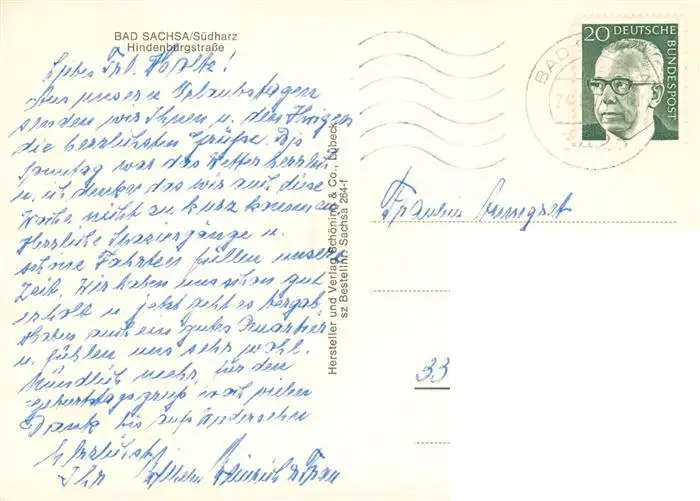 BAD SACHSA/Südharz
Hindenburgstraße
Liebes Frl. !
Aus unseren Urlaubstagen
senden wir Ihnen u. den Ihrigen
die herzlichsten Grüße. Bis
Sonntag war das Wetter herrlich
u. ich denke das wir auch diese
Woche nicht zu kurz kommen.
Herrliche Spaziergänge u.
schöne Fahrten füllen unsere
Zeit. Wir haben uns schon gut
erholt u. jetzt geht es bergab.
Haben auch ein gutes Quartier
u. fühlen uns sehr wohl.
Mündlich mehr, für den
Geburtstagsgruß noch vielen
Dank bis aufs Wiedersehen
Herzlichst
Ihr Wilhelm Heinrich u. Frau
Hersteller und Verlag Schöning & Co., Lübeck
sz Bestellnr. Sachsa 264-f
20 DEUTSCHE
BUNDESPOST
BAD
Fräulein Annegret
33